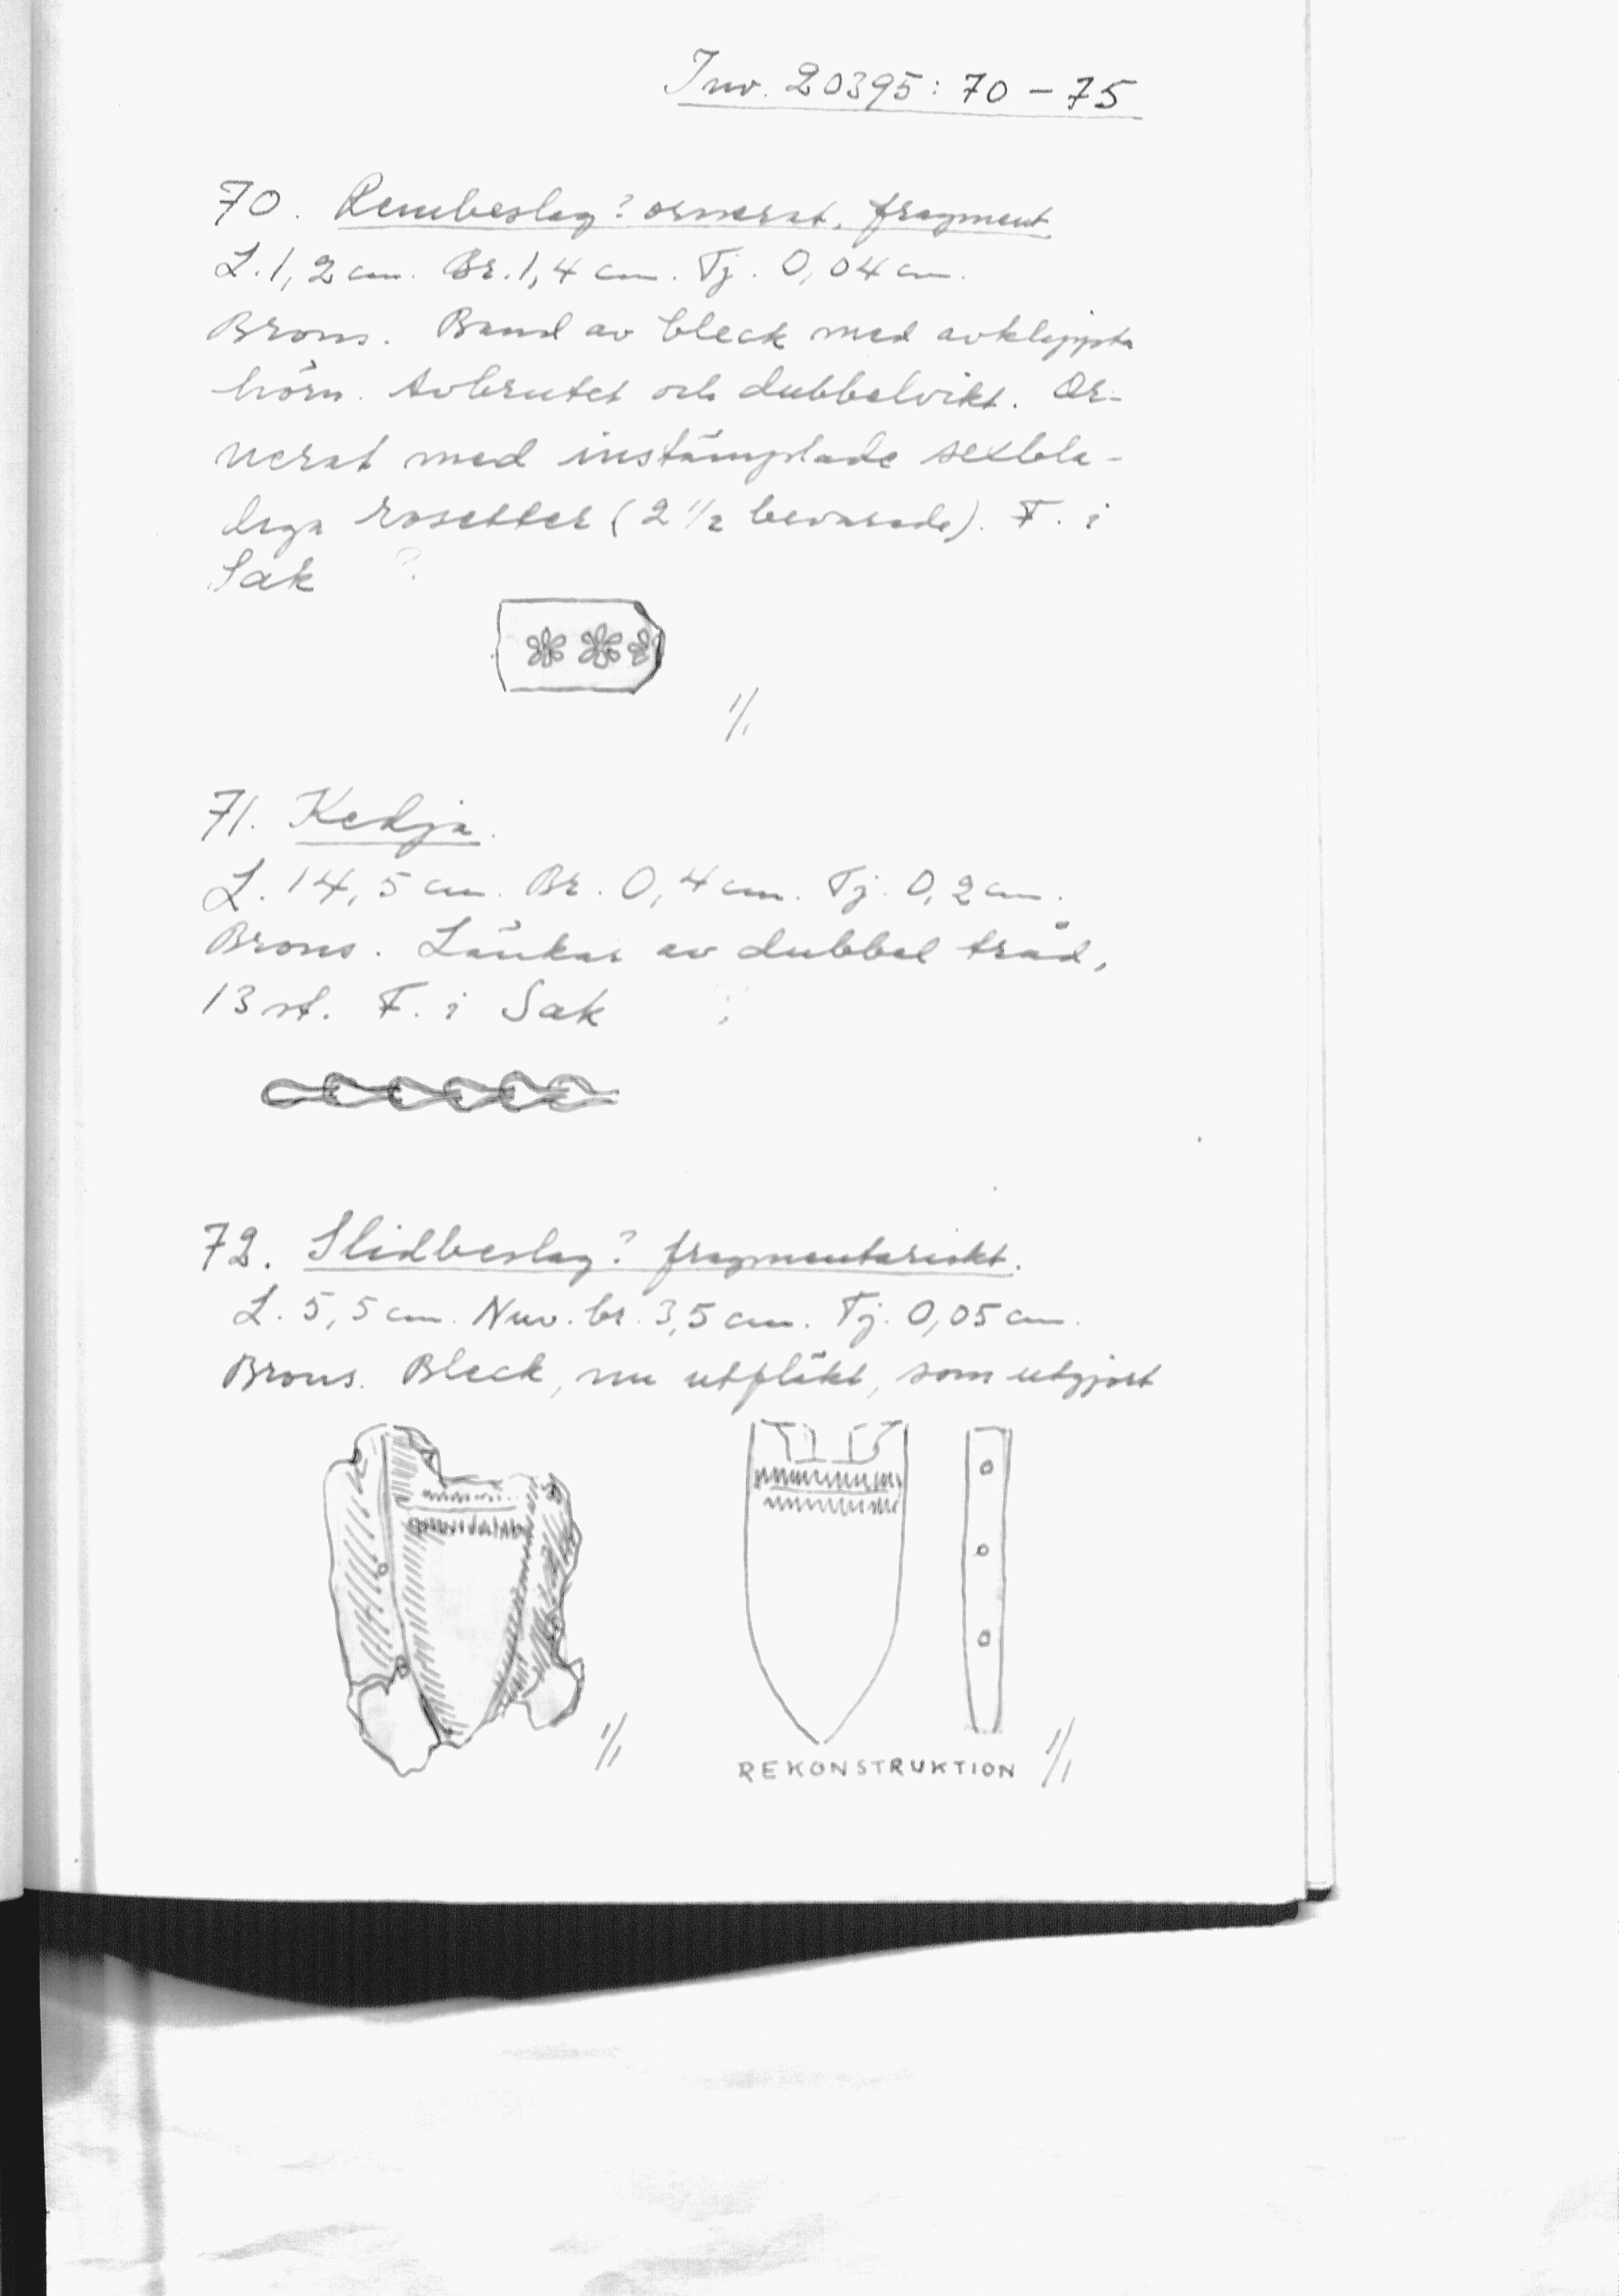 Inv. 20395: 70 – 75
70. Rembeslag? ornerat, fragment
L. 1,2 cm. Br. 1,4 cm. Tj. 0,04 cm.
Brons. Band av bleck med avklippta
hörn. Avbrutet och dubbelvikt. Or-
nerat med instämplade sexbla-
diga rosetter (2 1/2 bevarade). F. i
Sak ?
1/1
71. Kedja.
L. 14,5 cm. Br. 0,4 cm. Tj. 0,2 cm.
Brons. Länkar av dubbel tråd,
13 st. F. i Sak ?
72. Slidbeslag? fragmentariskt.
L. 5,5 cm. Nuv. br. 3,5 cm. Tj. 0,05 cm.
Brons. Bleck, nu utfläkt, som utgjort
1/1
REKONSTRUKTION 1/1